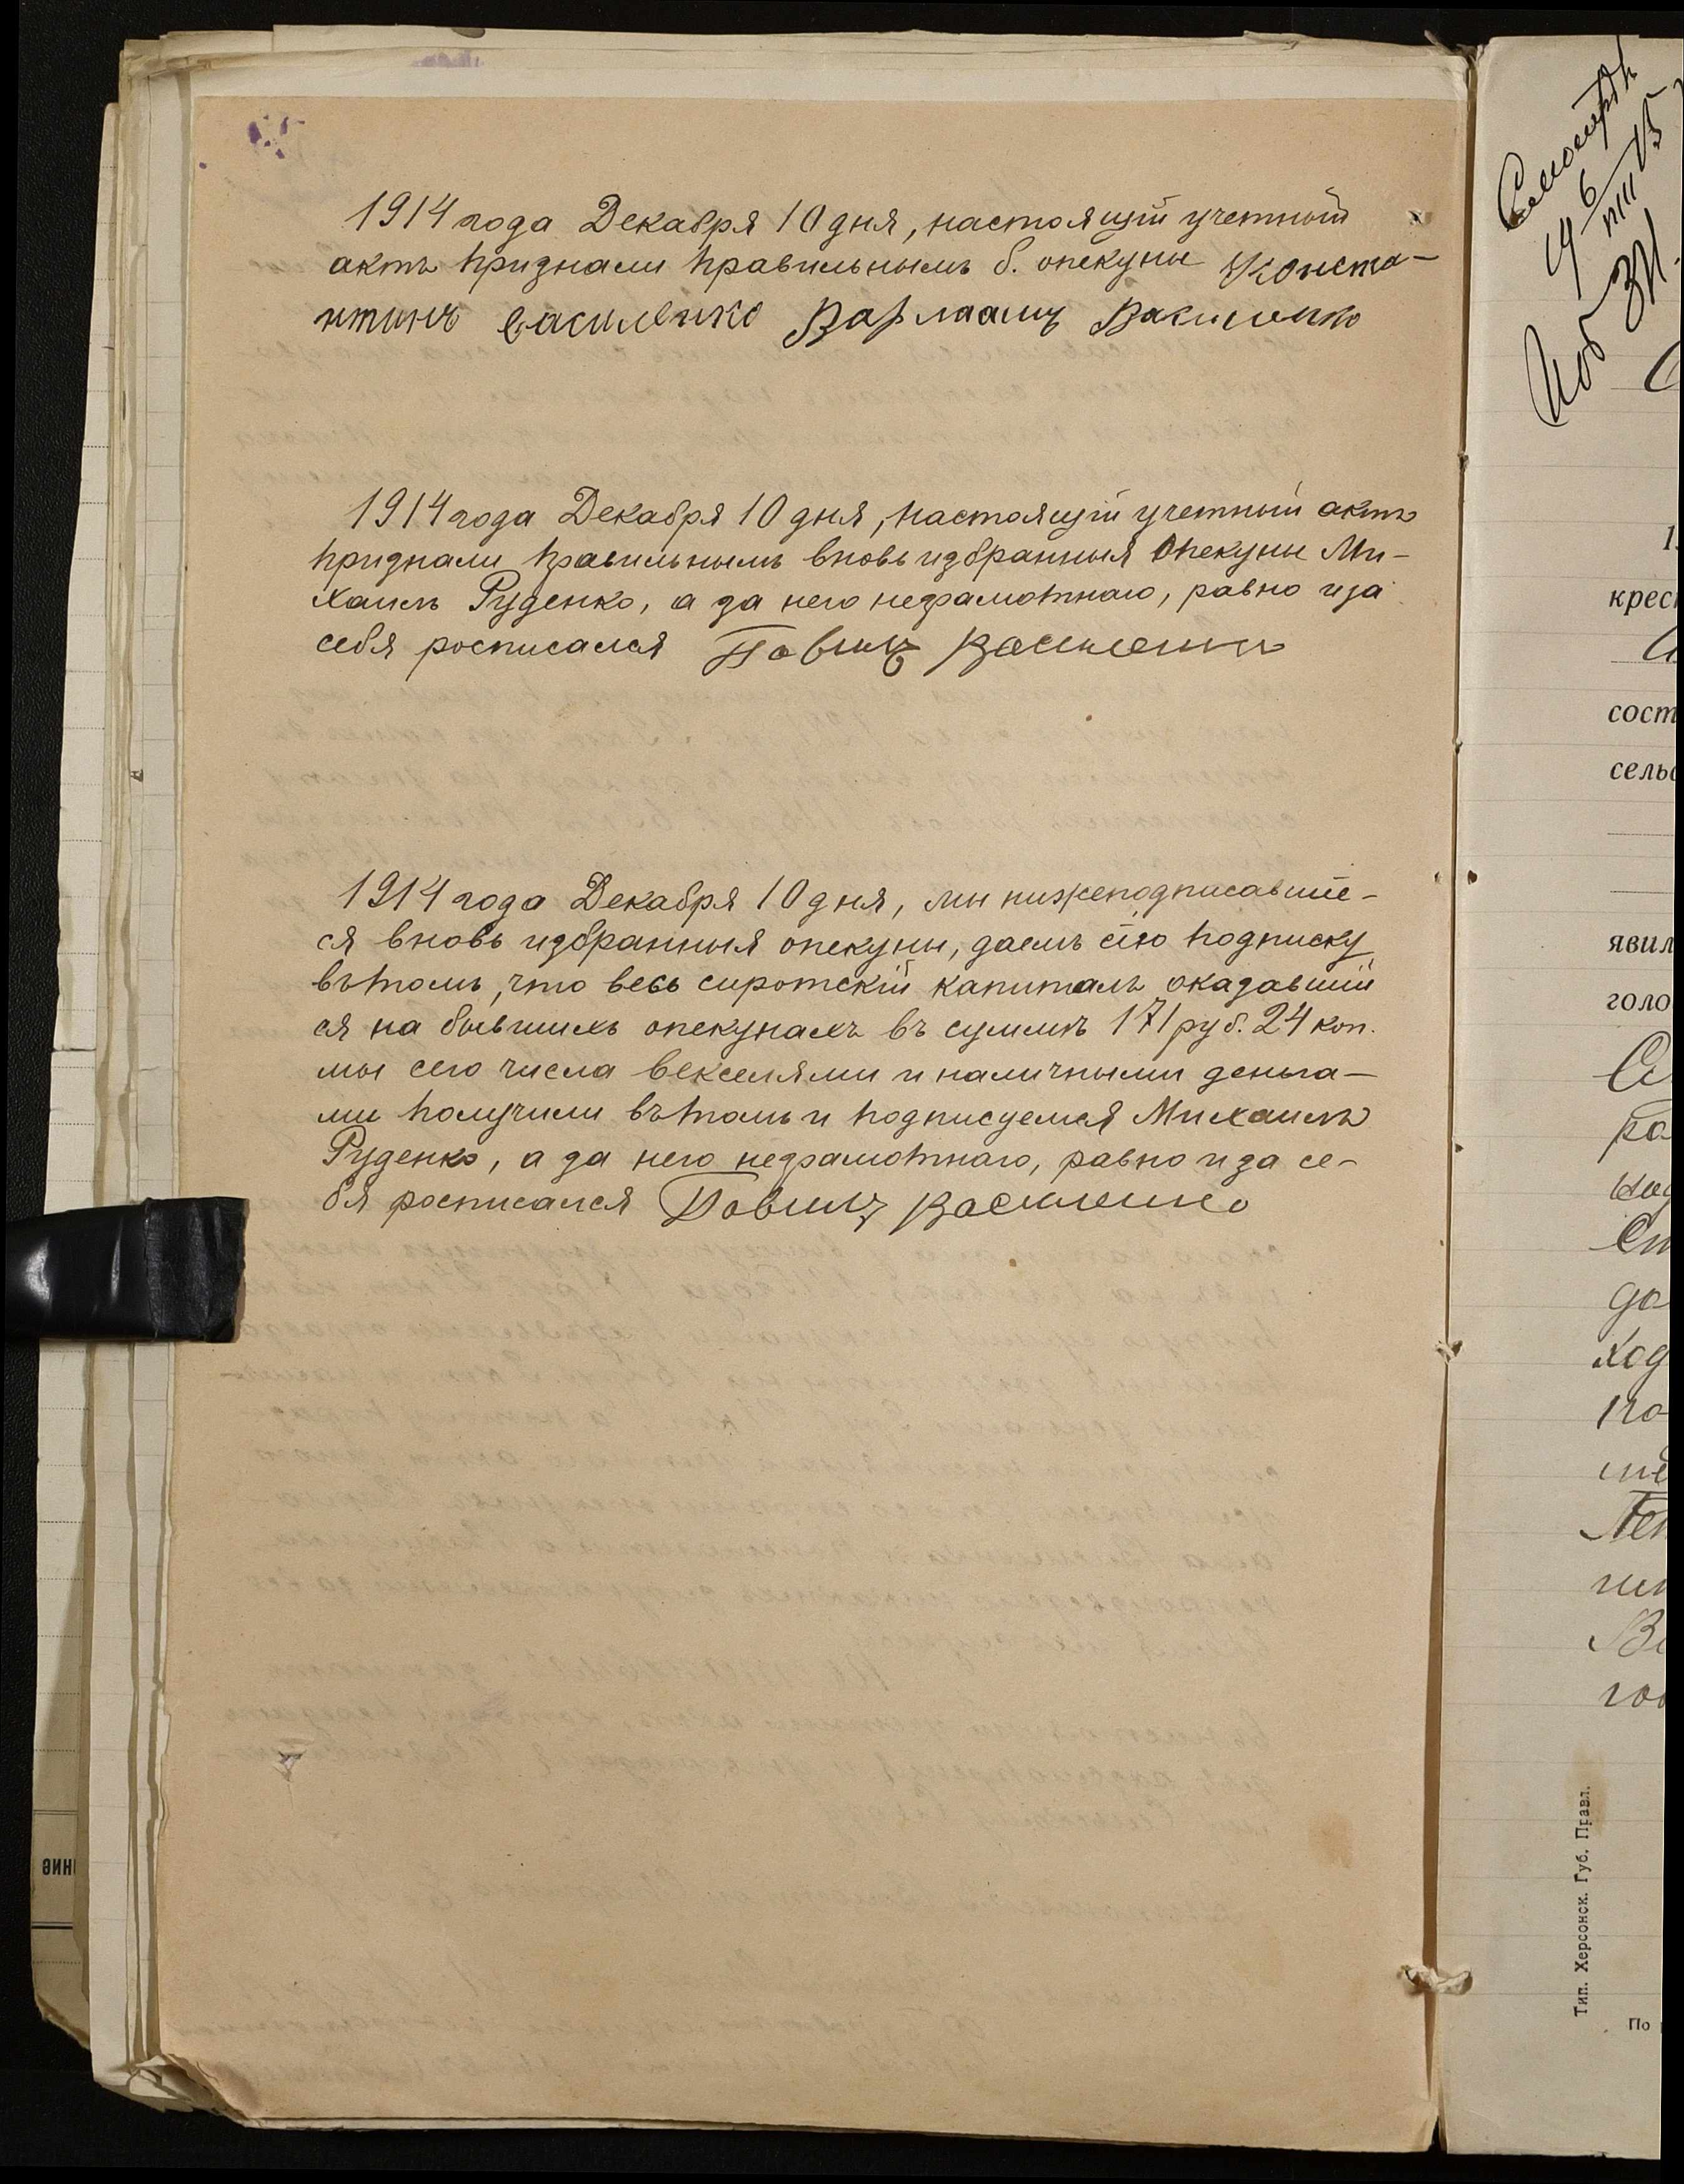 1914 года Декабря 10 дня, настоящiй учетный
актъ признали правильнымъ б. опекуны Конста-
нтинъ Василенко Варлаамъ Василенко
1914 года Декабря 10 дня, настоящiй учетный актъ
признали правильнымъ вновь избранныя Опекуны Ми-
хаилъ Руденко, а за него неграмотнаго, равно и за
себя росписался Павилъ Василенко
1914 года Декабря 10 дня, мы нижеподписавшiе-
ся вновь избранныя опекуны, даемъ сiю подписку
въ томъ, что весь сиротскiй капиталъ оказавшiй
ся на бывшихъ опекунахъ въ суммѣ 171 руб. 24 коп.
мы сего числа векселями и наличными деньга-
ми получили въ томъ и подписуемся Михаилъ
Руденко, а за него неграмотнаго, равно и за се-
бя росписался Павилъ Василенко
крес
сост
сель
явил
голо
Тип. Херсонск. Губ. Правл.
По